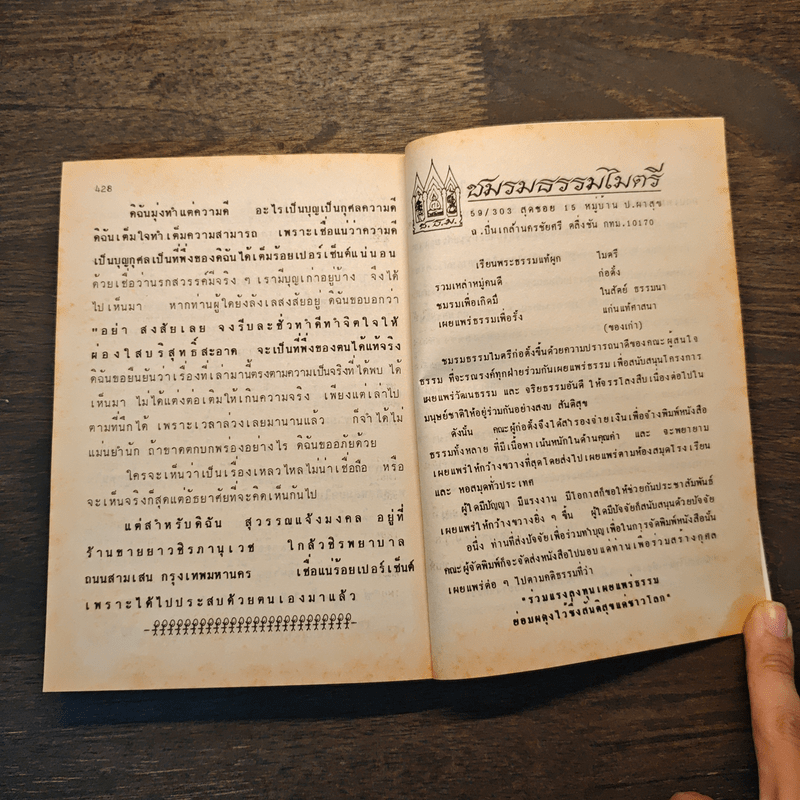 428
ดิฉันมุ่งทำแต่ความดี อะไรเป็นบุญเป็นกุศลความดี
ดิฉันเต็มใจทำเต็มความสามารถ เพราะเชื่อแน่ว่าความดี
เป็นบุญกุศลเป็นที่พึ่งของดิฉันได้เต็มร้อยเปอร์เซ็นต์แน่นอน
ด้วยเชื่อว่านรกสวรรค์มีจริง ๆ เรามีบุญเก่าอยู่บ้าง จึงได้
ไปเห็นมา หากท่านผู้ใดยังลังเลสงสัยอยู่ ดิฉันขอบอกว่า
"อย่า สงสัยเลย จงรีบละชั่วทำดีทำจิตใจให้
ผ่องใสบริสุทธิ์สะอาด จะเป็นที่พึ่งของตนได้แท้จริง
ดิฉันขอยืนยันว่าเรื่องที่เล่ามานี้ตรงตามความเป็นจริงที่ได้พบ ได้
เห็นมา ไม่ได้แต่งต่อเติมให้เกินความจริง เพียงแต่เล่าไป
ตามที่นึกได้ เพราะเวลาล่วงเลยมานานแล้ว ก็จำได้ไม่
แม่นยำนัก ถ้าขาดตกบกพร่องอย่างไร ดิฉันขออภัยด้วย
ใครจะเห็นว่าเป็นเรื่องเหลวไหลไม่น่าเชื่อถือ หรือ
จะเห็นจริงก็สุดแต่อัธยาศัยที่จะคิดเห็นกันไป
แต่สำหรับดิฉัน สุวรรณแจ้งมงคล อยู่ที่
ร้านขายยาวชิรภานุเวช ใกล้วชิรพยาบาล
ถนนสามเสน กรุงเทพมหานคร เชื่อแน่ร้อยเปอร์เซ็นต์
เพราะได้ไปประสบด้วยตนเองมาแล้ว
ช.ธ.ม.
ชมรมธรรมไมตรี
59/303 สุดซอย 15 หมู่บ้าน ป.ผาสุข
ถ.ปิ่นเกล้านครชัยศรี ตลิ่งชัน กทม.10170
เรียนพระธรรมแท้ผูก ไมตรี
รวมเหล่าหมู่คนดี ก่อตั้ง
ชมรมเพื่อเกิดมี ในสัตย์ ธรรมนา
เผยแพร่ธรรมเพื่อรั้ง แก่นแท้ศาสนา
(ของเก่า)
ชมรมธรรมไมตรีก่อตั้งขึ้นด้วยความปรารถนาดีของคณะผู้สนใจ
ธรรม ที่จะรณรงค์ทุกฝ่ายร่วมกันเผยแพร่ธรรม เพื่อสนับสนุนโครงการ
เผยแพร่วัฒนธรรม และ จริยธรรมอันดี ให้จรรโลงสืบเนื่องต่อไปใน
มนุษย์ชาติให้อยู่ร่วมกันอย่างสงบ สันติสุข
ดังนั้น คณะผู้ก่อตั้งจึงได้สำรองจ่ายเงินเพื่อจ้างพิมพ์หนังสือ
ธรรมทั้งหลาย ที่มีเนื้อหาเน้นหนักในด้านคุณค่า และ จะพยายาม
เผยแพร่ให้กว้างขวางที่สุดโดยส่งไปเผยแพร่ตามห้องสมุดโรงเรียน
และ หอสมุดทั่วประเทศ
ผู้ใดมีปัญญา มีแรงงาน มีโอกาสก็ขอให้ช่วยกันประชาสัมพันธ์
เผยแพร่ให้กว้างขวางยิ่ง ๆ ขึ้น ผู้ใดมีปัจจัยก็สนับสนุนด้วยปัจจัย
อนึ่ง ท่านที่ส่งปัจจัยเพื่อร่วมทำบุญเพื่อในการจัดพิมพ์หนังสือนั้น
คณะผู้จัดพิมพ์ก็จะจัดส่งหนังสือไปมอบแด่ท่านเพื่อร่วมสร้างกุศล
เผยแพร่ต่อ ๆ ไปตามคติธรรมที่ว่า
"ร่วมแรงลงทุนเผยแพร่ธรรม
ย่อมผดุงไว้ซึ่งสันติสุขแด่ชาวโลก"